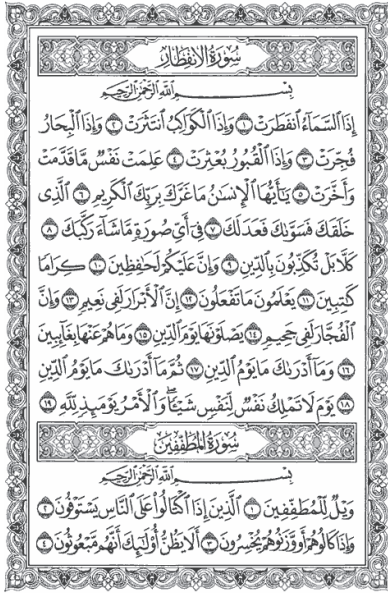 سُورَةُ الِانْفِطَارِ
بِسْمِ اللَّهِ الرَّحْمَٰنِ الرَّحِيمِ
إِذَا ٱلسَّمَآءُ ٱنفَطَرَتْ ١ وَإِذَا ٱلْكَوَاكِبُ ٱنتَثَرَتْ ٢ وَإِذَا ٱلْبِحَارُ
فُجِّرَتْ ٣ وَإِذَا ٱلْقُبُورُ بُعْثِرَتْ ٤ عَلِمَتْ نَفْسٌ مَّا قَدَّمَتْ
وَأَخَّرَتْ ٥ يَٰٓأَيُّهَا ٱلْإِنسَٰنُ مَا غَرَّكَ بِرَبِّكَ ٱلْكَرِيمِ ٦ ٱلَّذِى
خَلَقَكَ فَسَوَّىٰكَ فَعَدَلَكَ ٧ فِىٓ أَىِّ صُورَةٍ مَّا شَآءَ رَكَّبَكَ ٨
كَلَّا بَلْ تُكَذِّبُونَ بِٱلدِّينِ ٩ وَإِنَّ عَلَيْكُمْ لَحَٰفِظِينَ ١٠ كِرَامًا
كَٰتِبِينَ ١١ يَعْلَمُونَ مَا تَفْعَلُونَ ١٢ إِنَّ ٱلْأَبْرَارَ لَفِى نَعِيمٍ ١٣ وَإِنَّ
ٱلْفُجَّارَ لَفِى جَحِيمٍ ١٤ يَصْلَوْنَهَا يَوْمَ ٱلدِّينِ ١٥ وَمَا هُمْ عَنْهَا بِغَآئِبِينَ
١٦ وَمَآ أَدْرَىٰكَ مَا يَوْمُ ٱلدِّينِ ١٧ ثُمَّ مَآ أَدْرَىٰكَ مَا يَوْمُ ٱلدِّينِ
١٨ يَوْمَ لَا تَمْلِكُ نَفْسٌ لِّنَفْسٍ شَيْـًٔا ۖ وَٱلْأَمْرُ يَوْمَئِذٍ لِّلَّهِ ١٩
سُورَةُ المُطَفِّفِينَ
بِسْمِ اللَّهِ الرَّحْمَٰنِ الرَّحِيمِ
وَيْلٌ لِّلْمُطَفِّفِينَ ١ ٱلَّذِينَ إِذَا ٱكْتَالُوا۟ عَلَى ٱلنَّاسِ يَسْتَوْفُونَ ٢
وَإِذَا كَالُوهُمْ أَو وَّزَنُوهُمْ يُخْسِرُونَ ٣ أَلَا يَظُنُّ أُو۟لَٰٓئِكَ أَنَّهُم مَّبْعُوثُونَ ٤